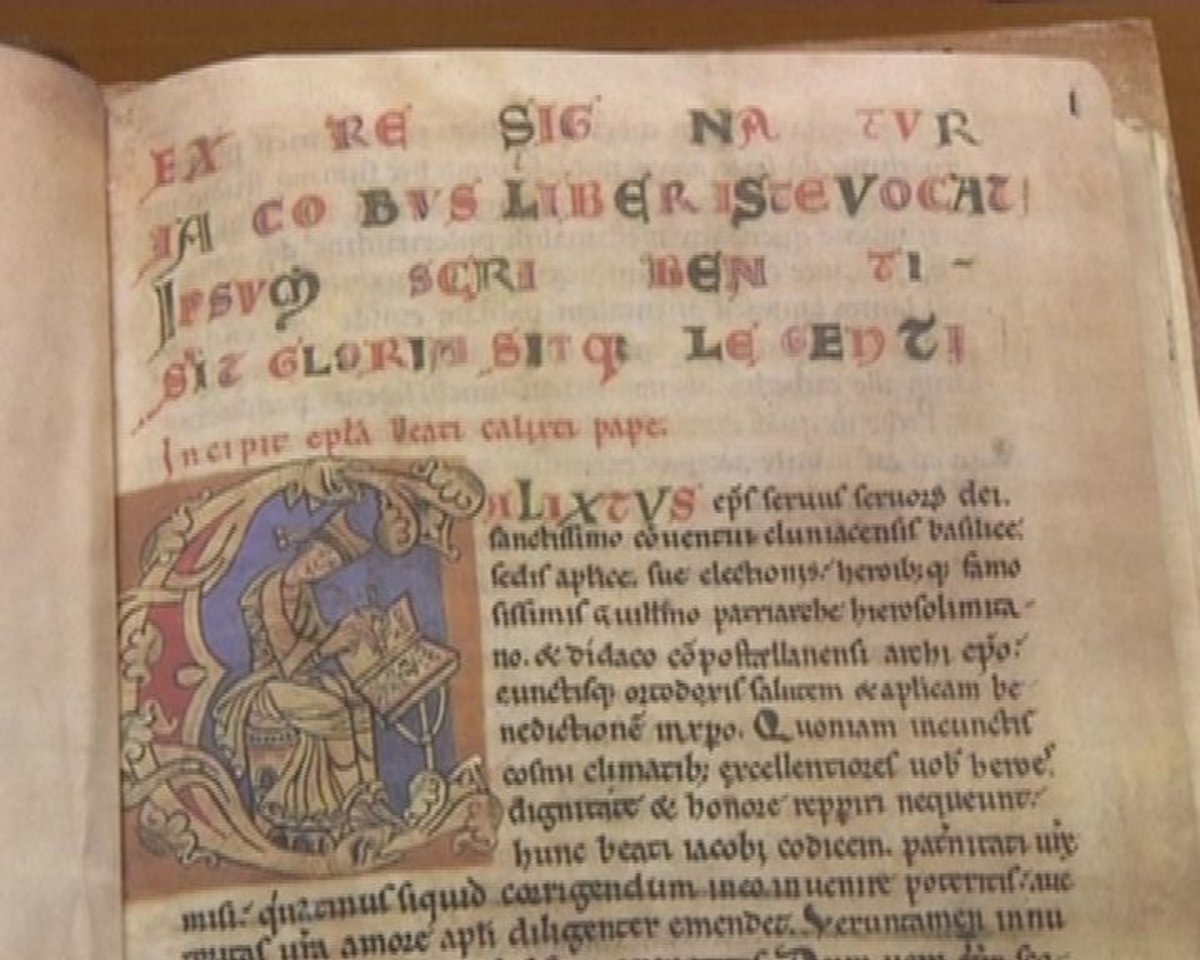 1
EX RE SIG NA TVR
IA CO BVS LIBER ISTE VOCAT
IPSVM SCRI BEN TI-
SIT GLORIA SITQ; LE GENTI
Incipit epła beati calixti pape.
CALIXTVS ep̄s seruus seruorȝ dei.
sanctissimo cōuentui cluniacensis basilice.
sedis aplice. sue electionis. heroib; q; famo
sissimis Guillmo patriarche hierosolimita-
no. & didaco cōpostellanensi archiep̄o.
cunctisq; ortodoxis salutem & aplicam be
nedictionē in xp̄o. Quoniam in cunctis
cosmi climatib; excellentiores uob heroes
dignitate & honore reppiri nequeunt.
hunc beati iacobi codicem. patnitati
misi. quatinus siquid corrigendum in eo inuenire poteritis. auc
amore apłi diligenter emendet. Veruntamen innu